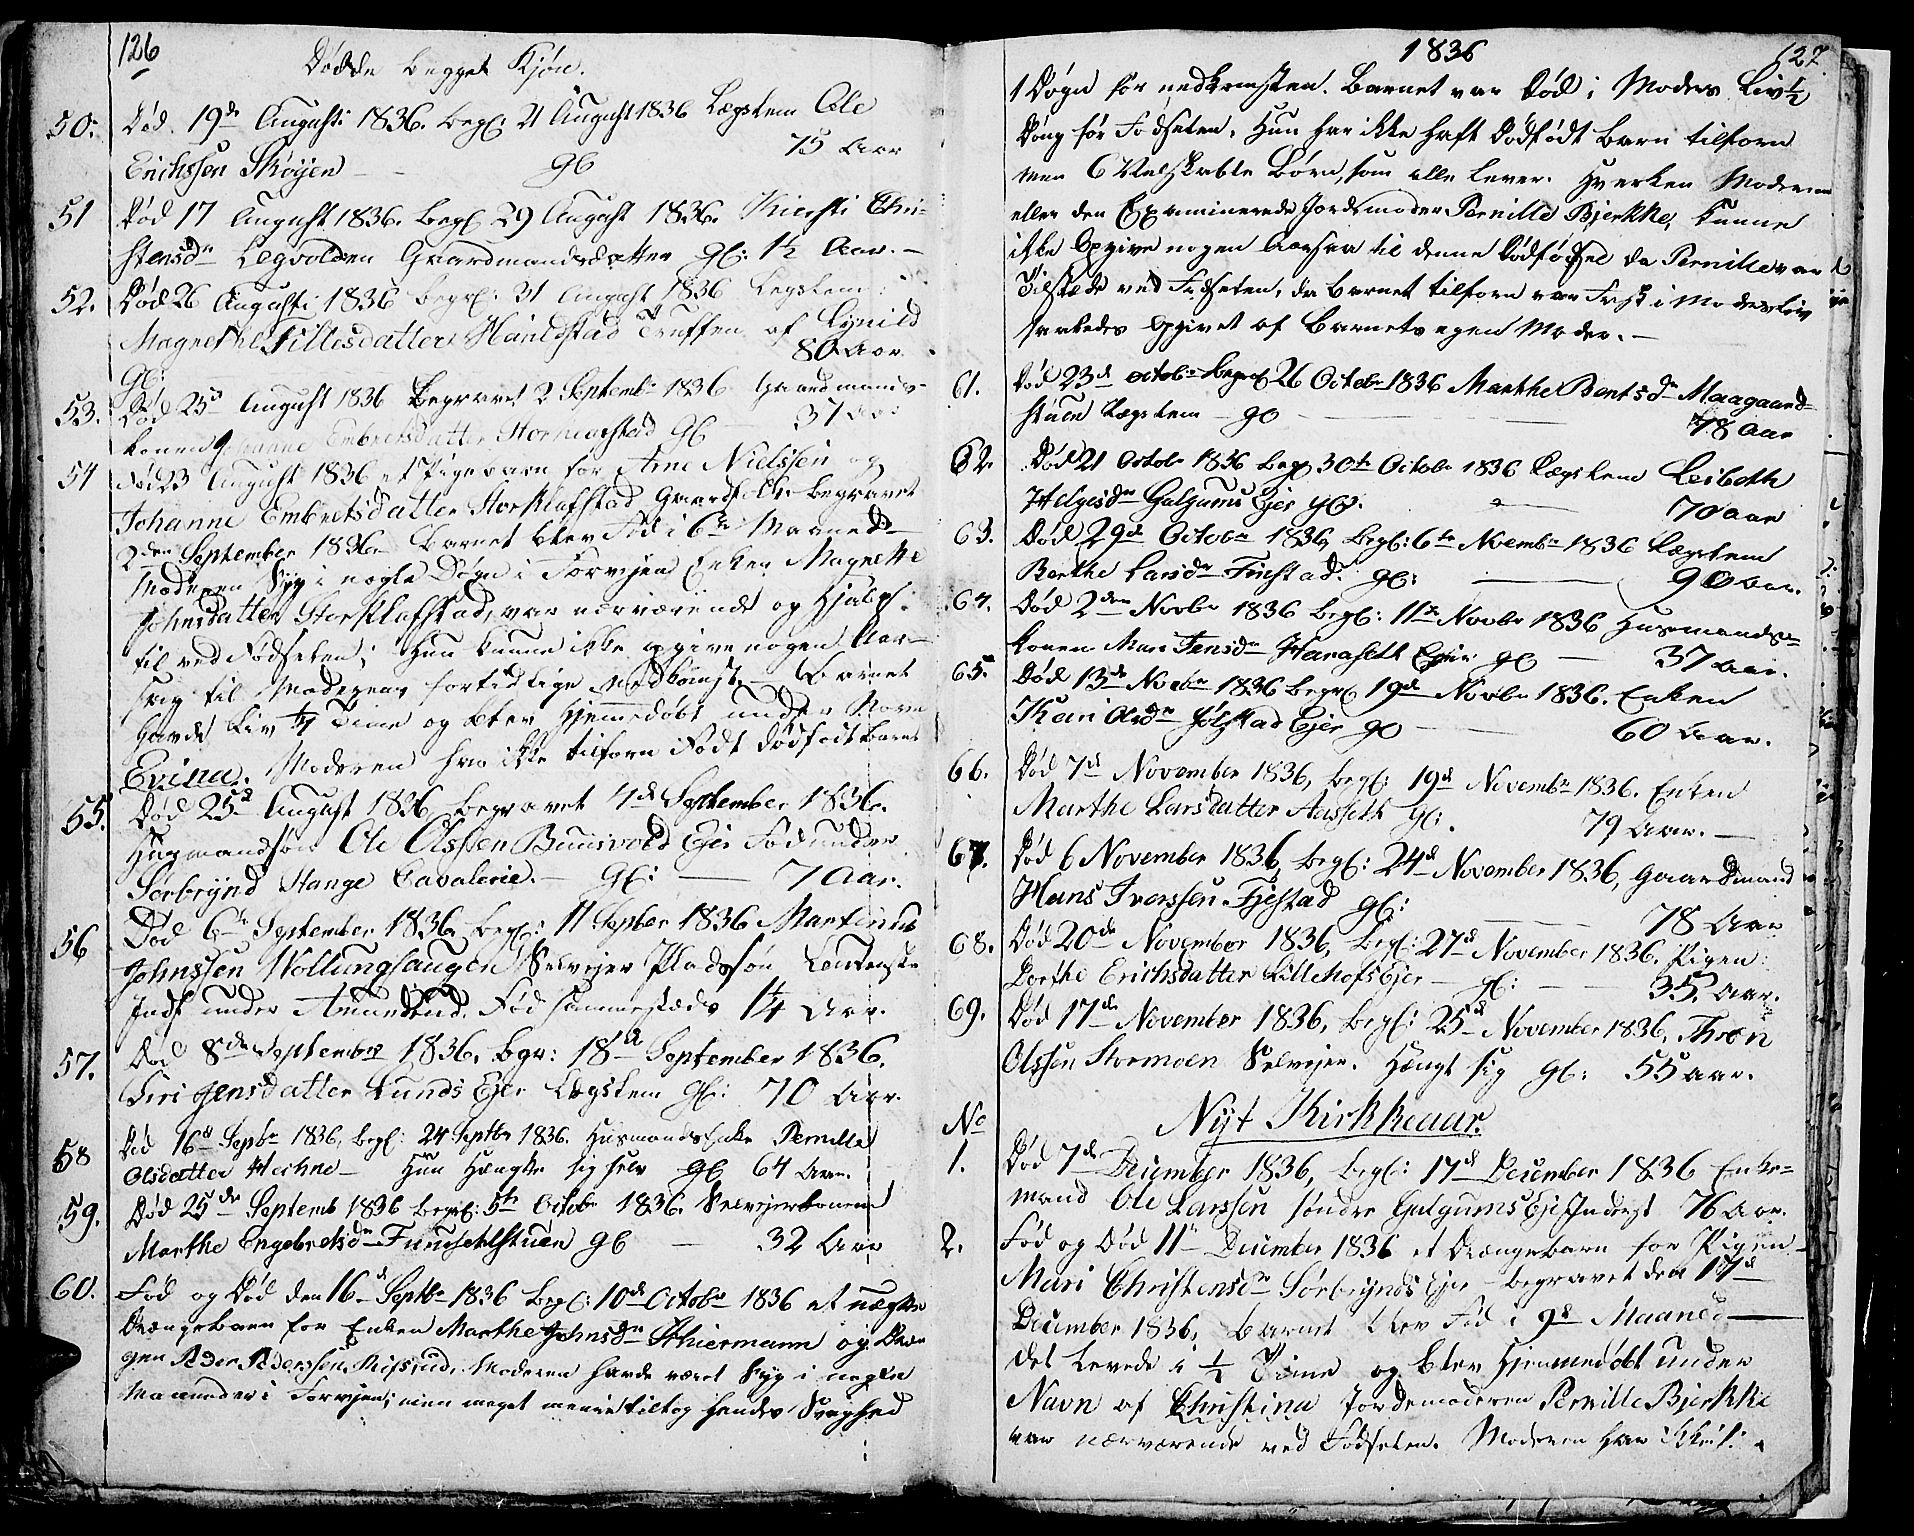 126
Dödde begges Kjøn.
50. Död. 19de August 1836. begl: 21 August 1836 Lægslem Ole
Erichssen Skøyen — gl 75 Aar
51 Död 17 August 1836. begl. 29 August 1836. Kiersti Chri-
stensdr Legvolden Gaardmandsdatter gl: 1½ Aar. —
52. Död 26 August: 1836 begr: 31 August 1836 Legslem:
Magnethe Nillesdatter Haialdstad Truffen af
gl: 80 Aar
53. Död 25de August 1836 Begravet 2 Septembr 1836 Gaardmands-
konen Johanne Embretsdatter Storklafstad gl — 37 Aar
54 Död 23 August 1836 et Pigebarn for Arne Nielssen og
Johanne Embretsdatter Storklafstad Gaardfolk begravet
2den September 1836. Barnet blev Fød i 6te Maaned
Moderen Syg i nogle Døgn i Forvejen Enken Magnethe
Johnsdatter Storklafstad, var nærværende og Hjalp:
til ved Fødselen; Hun kunne ikke opgive nogen Aar-
sag til Moderens fortidlige Nedkomst. — Barnet
havde Liv ¼ Time og blev Hjemmedøbt under Navn
Evina. Moderen har ikke tilforn Født dødfødt barn
55. Död 25de August 1836 begravet 4de September 1836.
Husmandsøn Ole Olssen Buusvold Ejer Fød under
Sørbrynd Stange Cavalerie. — gl: — 7 Aar.
56 Död 6te September 1836. begl: 11 Septber 1836 Martinus
Johnssen Wollunghaugen Selvejer Pladssøn
Inds under Amundrud. Fød sammesteds 1¼ Aar.
57. Död 8de September 1836. begr: 18de September 1836.
Siri Jensdatter Lunds Ejer Lægslem gl: 70 Aar.
58 Död 16de Septbr 1836, begl: 24 Septbr 1836. Husmandsenke Pernille
Olsdatter — Hun Hængte sig selv gl 64 Aar.
59. Död 25de Septemb 1836 begrl: 5te Octobr 1836. Selvejerkonen
Marthe Engebretsdr Furusethstuen gl — 32 Aar
60. Fød og Død den 16de Septbr 1836 begl: 10de Octobr 1836 et uægte
Drængebarn for Enken Marthe Johnsdr Sthiermann og Dren
gen Peder Pederssen. Moderen havde været Syg i nogle
Maaneder i Forvejen; men meget mere tiltog Hendes Svaghed
1836
127.
1 Døgn før nedkomsten. Barnet var død i Moders Liv ½
Døng før Fødselen. Hun har ikke haft Dødfødt Barn tilforn
men 6 Velskabte Börn, som alle lever. Hverken Moderen
eller den Examinerede Jordemoder Pernille Bjerkke, kunne
ikke Opgive nogen Aarsag til denne Dödfødsel da Pernille var
Tilstede ved Fødselen, da barnet tilforn var Friskt i Modersliv
saaledes Opgivet af Barnets egen Moder. —
61. Död 23de Octobr begrl 26 Octobr 1836 Marthe Bentsdr Maagaard-
stuen Lægslem — gl — 78 Aar
62. Död 21 Octobr 1836 begl 30te Octobr 1836 Lægslem Lisbeth
Helgesdr Galgums Ejer gl. 70 Aar
63. Död 29de Octobr 1836, begl: 6te Novembr 1836 Lægslem
Berthe Larsdr Finstad. gl: — 90 Aar.
64. Död 2den Novbr 1836 begl: 11te Novbr 1836 Husmands-
konen Mari Jensdr Harasett Ejer gl — 37 Aar.
65. Död 13de Novbr 1836 begrl 19de Novbr 1836. Enken
Kari Olsdr Jølstad Ejer gl — 60 Aar.
66. Död 7de November 1836, begl: 19de Novembr 1836. Enken
Marthe Larsdatter Aaseth gl: 79 Aar. —
67. Död 6 November 1836, begl: 24de November 1836, Gaardmand
Hans Iverssen Fjestad gl: — 78 Aar
68. Död 20de November 1836, begl: 27de November 1836. Pigen:
Dorthe Erichsdatter Lillehofs Ejer — gl: — 35. Aar.
69. Död 17de November 1836, begl: 25de November 1836, Thron
Olssen Stormoen Selvejer. Hængt sig gl: 55 Aar.
No Nyt Kirkkeaar.
1. Död 7de December 1836, begl: 17de December 1836 Enke-
mand Ole Larssen søndre Galgums Eje Inderst 76 Aar.
2. Fød og Død 11te December 1836 et Drængebarn for Pigen
Mari Christensdr Sørbrynds Ejer begravet den 17de
December 1836, barnet blev Fød i 9de Maaned —
Det Levede i ½ Time og blev Hjemmedøbt under
Navn af Christina Jordemoderen Pernille Bjerkke
var nærværende ved Fødselen. Moderen har ikke